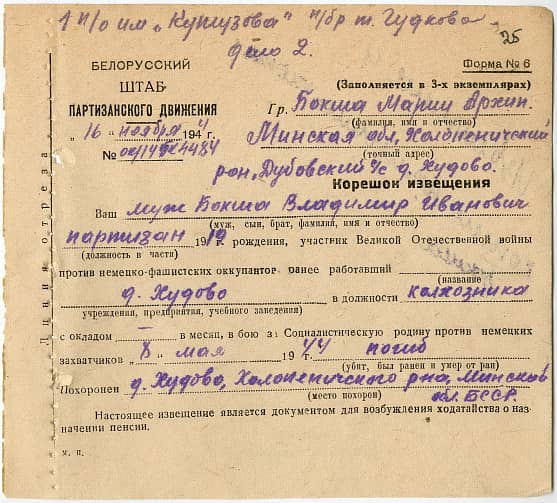 1 п/о им. "Кутузова" п/бр т. Гудкова
дело 2.
25
БЕЛОРУССКИЙ
ШТАБ
ПАРТИЗАНСКОГО ДВИЖЕНИЯ
"16" ноября 1944 г.
№
Форма № 6
(Заполняется в 3-х экземплярах)
Гр. Бокша Марии Архип.
(фамилия, имя и отчество)
Минская обл, Холопеничский
(точный адрес)
рон, Дубовский с/с д. Худово.
Корешок извещения
Ваш муж Бокша Владимир Иванович
(муж, сын, брат, фамилия, имя и отчество)
партизан 1919 рождения, участник Великой Отечественной войны
(должность в части)
против немецко-фашистских оккупантов ранее работавший
(название
д. Худово в должности колхозника
учреждения, предприятия, учебного заведения)
с окладом — в месяц, в бою за Социалистическую родину против немецких
захватчиков "8" мая 1944 погиб
(убит, был ранен и умер от ран)
Похоронен д. Худово, Холопеничского рна, Минской
(место похорон) обл. БССР.
Настоящее извещение является документом для возбуждения ходатайства о наз-
начении пенсии.
м. п.
Линия отреза